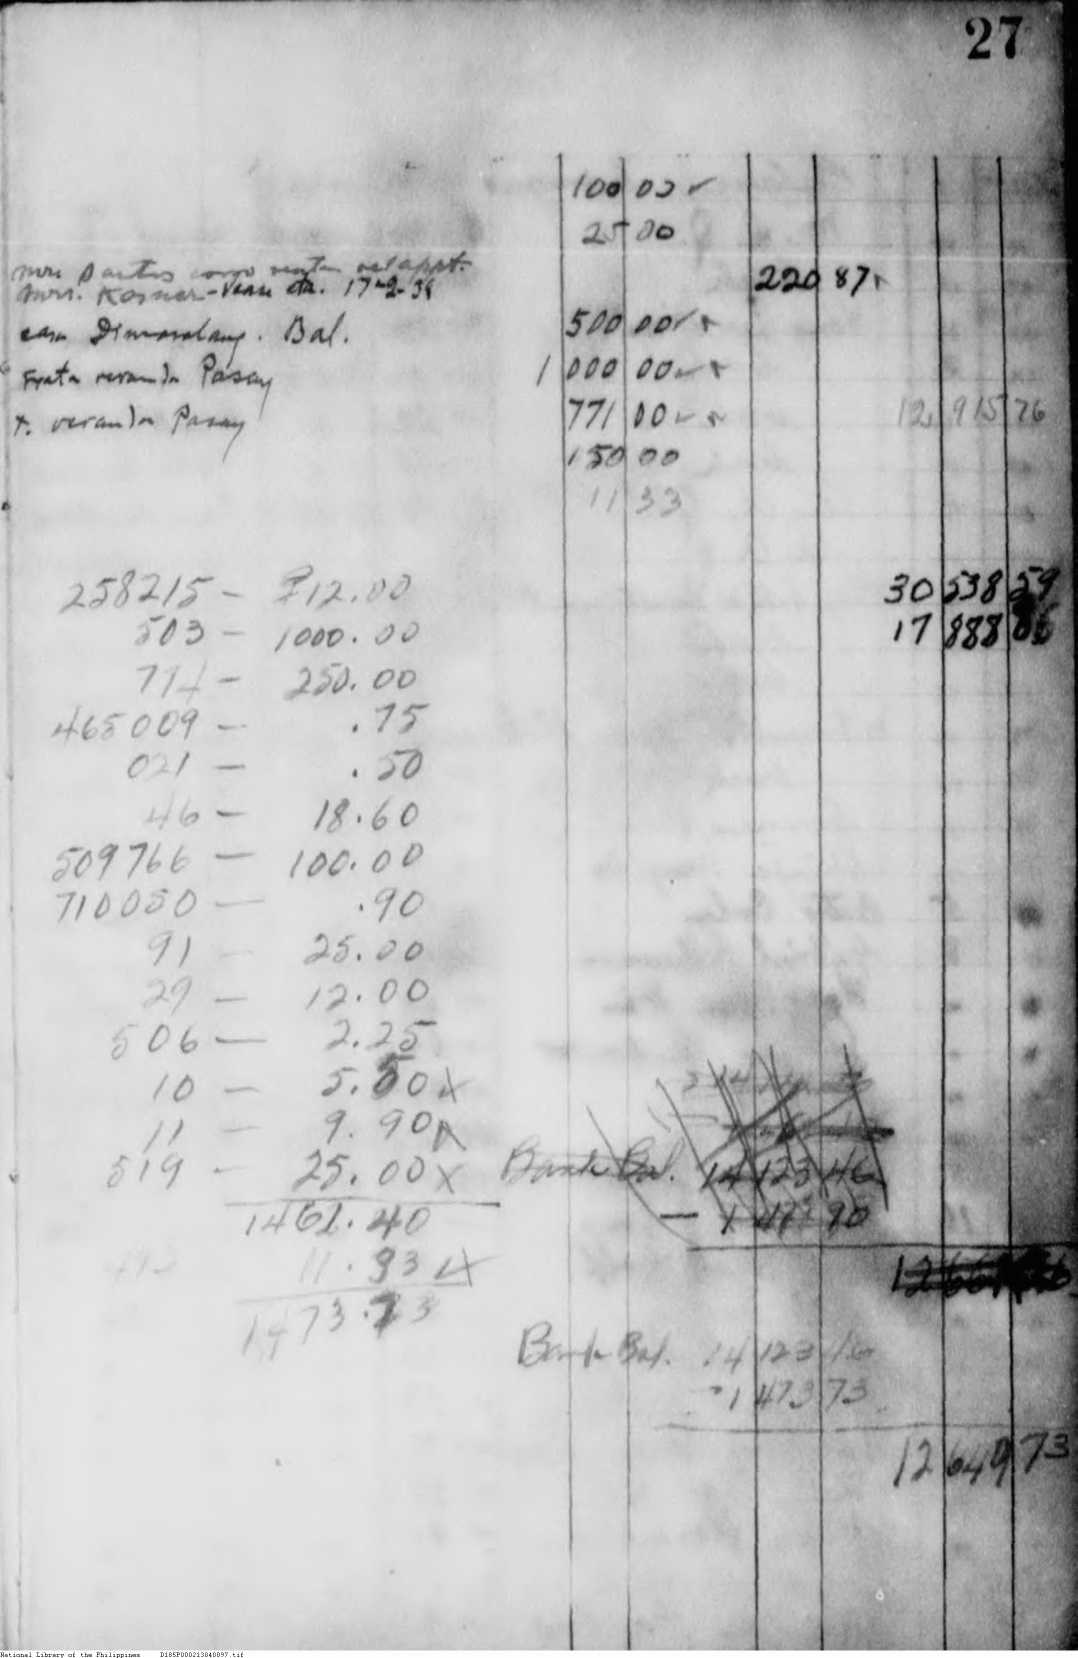 27
100 00 ✓
25 00
220 87
Mrs. Kosner - Vease cta. 17-2-39
casa Dimasalang. Bal. 500 00 ✓
veranda Pasay 1 000 00 ✓
veranda Pasay 771 00 ✓ 12 915 76
150 00
11 33
258215 - ₱12.00 30 538 59
503 - 1000.00 17 888
774 - 250.00
465009 - .75
021 - .50
46 - 18.60
509766 - 100.00
710050 - .90
91 - 25.00
29 - 12.00
506 - 2.25
10 - 5.50 x
11 - 9.90 x
519 - 25.00 x Bank Bal. 14 123 46
1461.40
11.93 x
1473.73
Bank Bal. 14 123 46
- 1 473 73
12 649 73
National Library of the Philippines D185P000213040897.tif